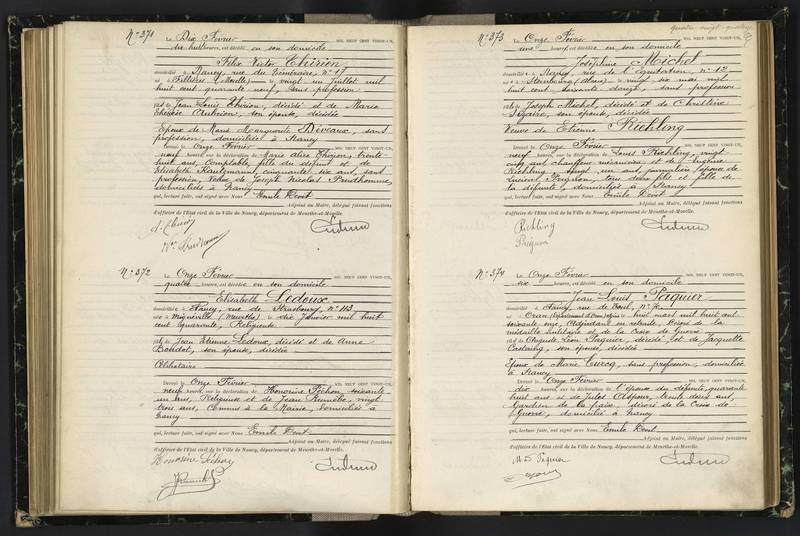 N° 371 Le Dix Février MIL NEUF CENT VINGT-UN,
dix huit heures, est décédé en son domicile
Félix Victor Thirion
domicilié à Nancy, rue du Téméraire, N° 17
né à Fillières (Moselle) le vingt un Juillet mil
huit cent quarante neuf, sans profession
fils de Jean Louis Thirion, décédé et de Marie
Thérèse Aubrion, son épouse, décédée
Epoux de Marie Marguerite Deveaux, sans
profession, domiciliée à Nancy
Dressé le Onze Février MIL NEUF CENT VINGT-UN,
neuf heures, sur la déclaration de Marie Alice Thirion, trente
huit ans, Comptable, fille du défunt et de
Elisabeth Kauffmann, cinquante six ans, sans
profession, de Joseph Nicolas Prudhomme,
domiciliées à Nancy
qui, lecture faite, ont signé avec Nous Emile Dont
Adjoint au Maire, délégué faisant fonctions
d'officier de l'Etat civil de la Ville de Nancy, département de Meurthe-et-Moselle.
N° 372 Le Onze Février MIL NEUF CENT VINGT-UN,
quatre heures, est décédée en son domicile
Elisabeth Ledoux
domiciliée à Nancy, rue de Strasbourg, N° 113
née à Mignéville (Meurthe) le dix Janvier mil huit
cent quarante, Religieuse
fille de Jean Etienne Ledoux, décédé et de Anne
son épouse, décédée
Célibataire
Dressé le Onze Février MIL NEUF CENT VINGT-UN,
neuf heures, sur la déclaration de Honorine Péchon, soixante
un ans, Religieuse et de Jean vingt
trois ans, Commis à la Mairie, domiciliés à
Nancy
qui, lecture faite, ont signé avec Nous Emile Dont
Adjoint au Maire, délégué faisant fonctions
d'officier de l'Etat civil de la Ville de Nancy, département de Meurthe-et-Moselle.
N° 373 Le Onze Février MIL NEUF CENT VINGT-UN,
une heure, est décédée en son domicile
Joséphine Michel
domiciliée à Nancy, rue de l'Equitation, N° 12
née à Steinbourg (Alsace) le vingt six mai mil
huit cent soixante douze, sans profession
fille de Joseph Michel, décédé et de Christine
son épouse, décédée
Veuve de Etienne Richling
Dressé le Onze Février MIL NEUF CENT VINGT-UN,
neuf heures, sur la déclaration de Louis Richling, vingt
cinq ans, chauffeur mécanicien et de Eugénie
Richling, vingt un ans, journalière, épouse de
Lucien tous deux fils et fille de
la défunte, domiciliés à Nancy
qui, lecture faite, ont signé avec Nous Emile Dont
Adjoint au Maire, délégué faisant fonctions
d'officier de l'Etat civil de la Ville de Nancy, département de Meurthe-et-Moselle.
Richling
N° 374 Le Onze Février MIL NEUF CENT VINGT-UN,
six heures, est décédé en son domicile
Jean Louis Paquier
domicilié à Nancy, rue de Toul, N° 74
né à Oran (Département d'Oran, Algérie) le huit mars mil huit cent
soixante onze, Adjudant en retraite, Décoré de la
médaille militaire et de la Croix de Guerre
fils de Auguste Léon Paquier, décédé et de Jacquette
Castaing, son épouse, décédée
Epoux de Marie Turcq, sans profession, domiciliée
à Nancy
Dressé le Onze Février MIL NEUF CENT VINGT-UN,
dix heures, sur la déclaration de l'épouse du défunt, quarante
huit ans et de Jules trente deux ans,
Gardien de la paix, décoré de la Croix de
Guerre, domiciliés à Nancy
qui, lecture faite, ont signé avec Nous Emile Dont
Adjoint au Maire, délégué faisant fonctions
d'officier de l'Etat civil de la Ville de Nancy, département de Meurthe-et-Moselle.
Paquier